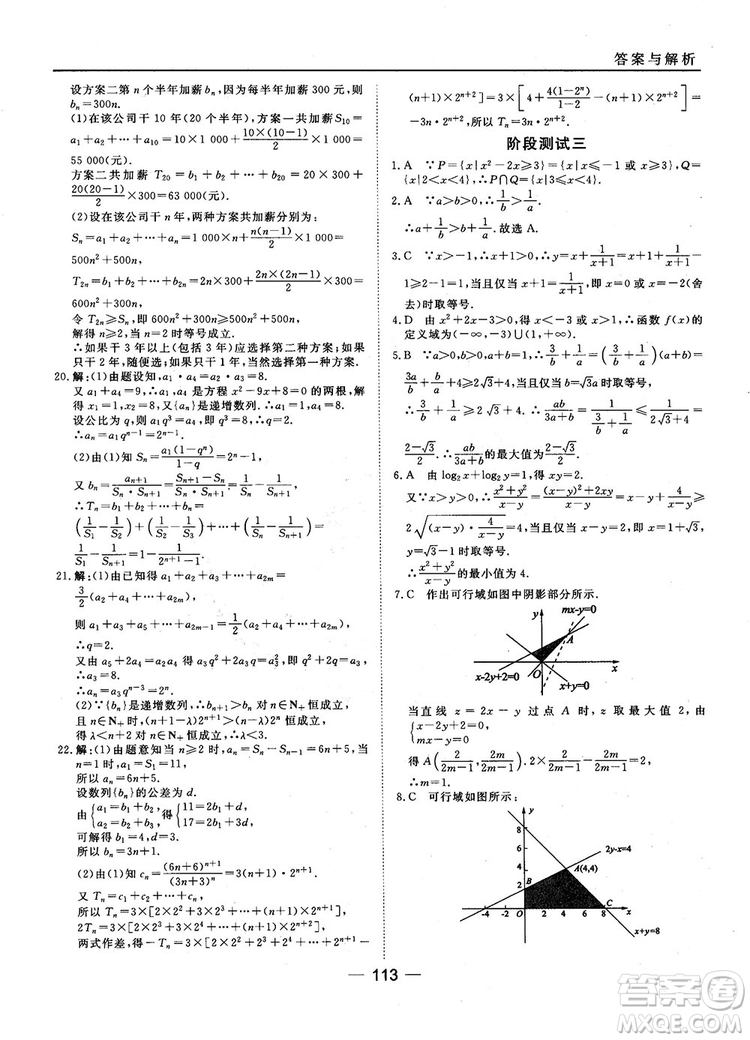 答案与解析
设方案二第 n 个半年加薪 bₙ，因为每半年加薪 300 元，则
bₙ=300n.
(1)在该公司干 10 年(20 个半年)，方案一共加薪 S₁₀=
a₁+a₂+⋯+a₁₀=10×1 000+\frac{10×(10-1)}{2}×1 000=
55 000(元).
方案二共加薪 T₂₀=b₁+b₂+⋯+b₂₀=20×300+
\frac{20(20-1)}{2}×300=63 000(元).
(2)设在该公司干 n 年，两种方案共加薪分别为：
Sₙ=a₁+a₂+⋯+aₙ=n×1 000+\frac{n(n-1)}{2}×1 000=
500n²+500n,
T₂ₙ=b₁+b₂+⋯+b₂ₙ=2n×300+\frac{2n×(2n-1)}{2}×300=
600n²+300n.
令 T₂ₙ≥Sₙ，即 600n²+300n≥500n²+500n,
解得 n≥2，当 n=2 时等号成立.
∴如果干 3 年以上(包括 3 年)应选择第二种方案；如果
只干 2 年，随便选；如果只干 1 年，当然选择第一种方案.
20.解：(1)由题设知，a₁·a₄=a₂·a₃=8.
又 a₁+a₄=9，∴a₁，a₄ 是方程 x²-9x+8=0 的两根，解
得 x₁=1，x₂=8，又{aₙ}是递增数列，∴a₁=1，a₄=8.
设公比为 q，则 a₁q³=a₄，即 q³=8，∴q=2.
∴aₙ=a₁qⁿ⁻¹=2ⁿ⁻¹.
(2)由(1)知 Sₙ=\frac{a₁(1-qⁿ)}{1-q}=2ⁿ-1,
又 bₙ=\frac{aₙ₊₁}{Sₙ·Sₙ₊₁}=\frac{Sₙ₊₁-Sₙ}{Sₙ·Sₙ₊₁}=\frac{1}{Sₙ}-\frac{1}{Sₙ₊₁},
∴Tₙ=b₁+b₂+⋯+bₙ=
(\frac{1}{S₁}-\frac{1}{S₂})+(\frac{1}{S₂}-\frac{1}{S₃})+⋯+(\frac{1}{Sₙ}-\frac{1}{Sₙ₊₁})=
\frac{1}{S₁}-\frac{1}{Sₙ₊₁}=1-\frac{1}{2ⁿ⁺¹-1}.
21.解：(1)由已知得 a₁+a₃+⋯+a₂ₘ=
\frac{3}{2}(a₂+a₄+⋯+a₂ₘ),
则 a₁+a₃+a₅+⋯+a₂ₘ₋₁=\frac{1}{2}(a₂+a₄+⋯+a₂ₘ),
∴q=2.
又由 a₄+a₅+a₆=3a₅=a₅²，即 a₅=3.
∴aₙ=a₅qⁿ⁻³=3·2ⁿ⁻².
(2)∵{bₙ}是递增数列，∴bₙ₊₁>bₙ 对 n∈N₊恒成立，
且 n∈N₊时，(n+1)(n+1-λ)>n(n-λ)恒成立，
得 λ<2n+1 对 n∈N₊恒成立，即 λ<3.
22.解：(1)由题意知当 n≥2 时，aₙ=Sₙ-Sₙ₋₁=6n+5,
当 n=1 时，a₁=S₁=11,
所以 aₙ=6n+5.
设数列{bₙ}的公差为 d.
由{a₁=b₁+b₂，a₂=b₂+b₃，得{11=2b₁+d，17=2b₁+3d，
可解得 b₁=4，d=3.
所以 bₙ=3n+1.
(2)由(1)知 cₙ=\frac{(6n+6)ⁿ⁺¹}{(3n+3)ⁿ}=3(n+1)·2ⁿ⁺¹,
又 Tₙ=c₁+c₂+⋯+cₙ,
所以 Tₙ=3×[2×2²+3×2³+⋯+(n+1)×2ⁿ⁺¹],
2Tₙ=3×[2×2³+3×2⁴+⋯+(n+1)×2ⁿ⁺²],
两式作差，得-Tₙ=3×[2×2²+2³+2⁴+⋯+2ⁿ⁺¹-
(n+1)×2ⁿ⁺²]=3×[4+\frac{4(1-2ⁿ)}{1-2}-(n+1)×2ⁿ⁺²]=
-3n·2ⁿ⁺²，所以 Tₙ=3n·2ⁿ⁺².
阶段测试三
1.A ∵P={x|x²-2x≥3}={x|x≤-1 或 x≥3}，Q=
{x|2<x<4}，∴P∩Q={x|3≤x<4}.
2.A ∵a>b>0，∴\frac{1}{b}>\frac{1}{a}>0，
∴a+\frac{1}{b}>b+\frac{1}{a}. 故选 A.
3.C ∵x>0，∴x+1>0，∴x+\frac{1}{x+1}=x+1+\frac{1}{x+1}-
1≥2-1=1，当且仅当 x+1=\frac{1}{x+1}，即 x=0 或 x=-2(舍
去)时取等号.
4.D 由 x²+2x-3>0，得 x<-3 或 x>1，∴函数 f(x)的
定义域为(-∞，-3)∪(1，+∞).
5.B ∵a>0，b>0，∴\frac{(3a+b)(a+b)}{ab}=
\frac{3a}{b}+\frac{b}{a}+4≥2√3+4，当且仅当 b=√3a 时取等号，
∴\frac{3}{b}+\frac{1}{a}≥2√3+4，∴\frac{ab}{3a+b}≤\frac{1}{4+2√3}=
\frac{2-√3}{2}，∴\frac{ab}{3a+b}的最大值为\frac{2-√3}{2}.
6.A 由 log₂x+log₂y=1，得 xy=2，
又∵x>y>0，∴\frac{x²+y²}{x-y}=\frac{(x-y)²+2xy}{x-y}≥
2√{(x-y)·\frac{4}{x-y}}=4，当且仅当 x-y=\frac{4}{x-y}，即
x=1+√3，y=√3-1 时取等号.
∴\frac{x²+y²}{x-y}的最小值为 4.
7.C 作出可行域如图中阴影部分所示.
y
mx-y=0
A
O
x
x-2y+2=0
x+y=0
当直线 z=2x-y 过点 A 时，z 取最大值 2，由
{x-2y+2=0，mx-y=0，
得 A(\frac{2}{2m-1}，\frac{2m}{2m-1}). 2×\frac{2}{2m-1}-\frac{2m}{2m-1}=2，
∴m=1.
8.C 可行域如图所示：
y
8
6
4
2
B
2y-x=4
A(4,4)
-4 -2 O 2 4 6 8 C x
x+y=8
113
答案圈
MXQE.COM